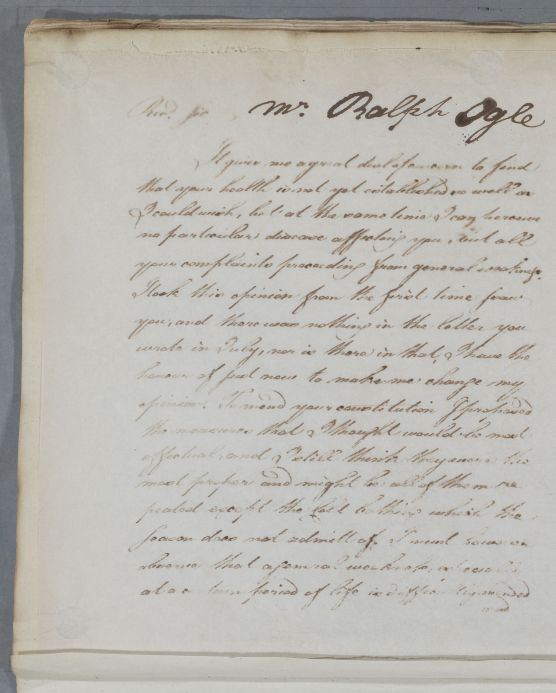 Revd. Sir
Mr. Ralph Ogle
It gives me a great deal of concern to find
that your health is not yet established so well as
I could wish, but at the same time I can perceive
no particular disease affecting you, but all
your complaints proceeding from general weakness.
I took this opinion from the first time I saw
you, and there was nothing in the letter you
wrote in July, nor is there in that, I have the
honour of just now to make me change my
opinion. To mend your constitution I proposed
the measures that I thought would be most
effectual, and I still think they were the
most proper and might be all of them re
peated except the cold bathing which the
season does not admitt of. I must however
observe that a general weakness, especially
at a certain period of life is difficultly mended
mend